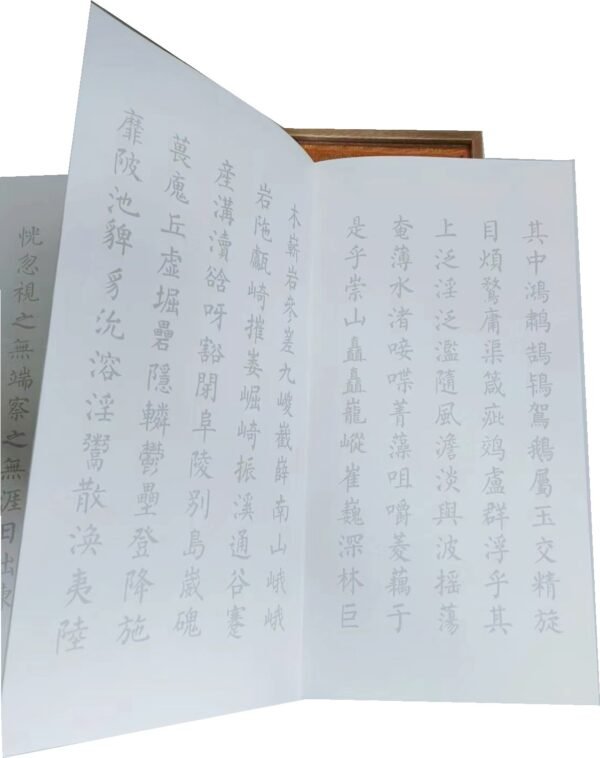 其中鴻鷫鵠鴇駕鵝屬玉交精旋
目煩鶩庸渠箴疵鵁盧群浮乎其
上泛淫泛濫隨風澹淡與波搖蕩
奄薄水渚唼喋菁藻咀嚼菱藕于
是乎崇山矗矗巃嵸崔巍深林巨
木嶄岩參差九嵕嶻薛南山峨峨
岩陁甗崎摧崣崛崎振溪通谷蹇
産溝瀆谽呀豁閉阜陵别島崴磈
丘虛堀礨隱轔鬱壘登降施
靡陂池貏豸沇溶淫鬻散渙夷陸
恍忽視之無端察之無涯日出東